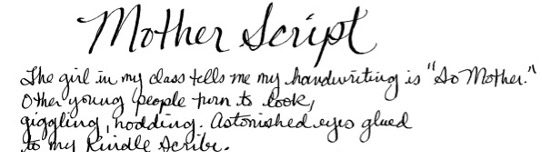 Mother Script
The girl in my class tells me my handwriting is "So Mother."
Other young people turn to look,
giggling, nodding. Astonished eyes glued
to my Kindle Scribe.